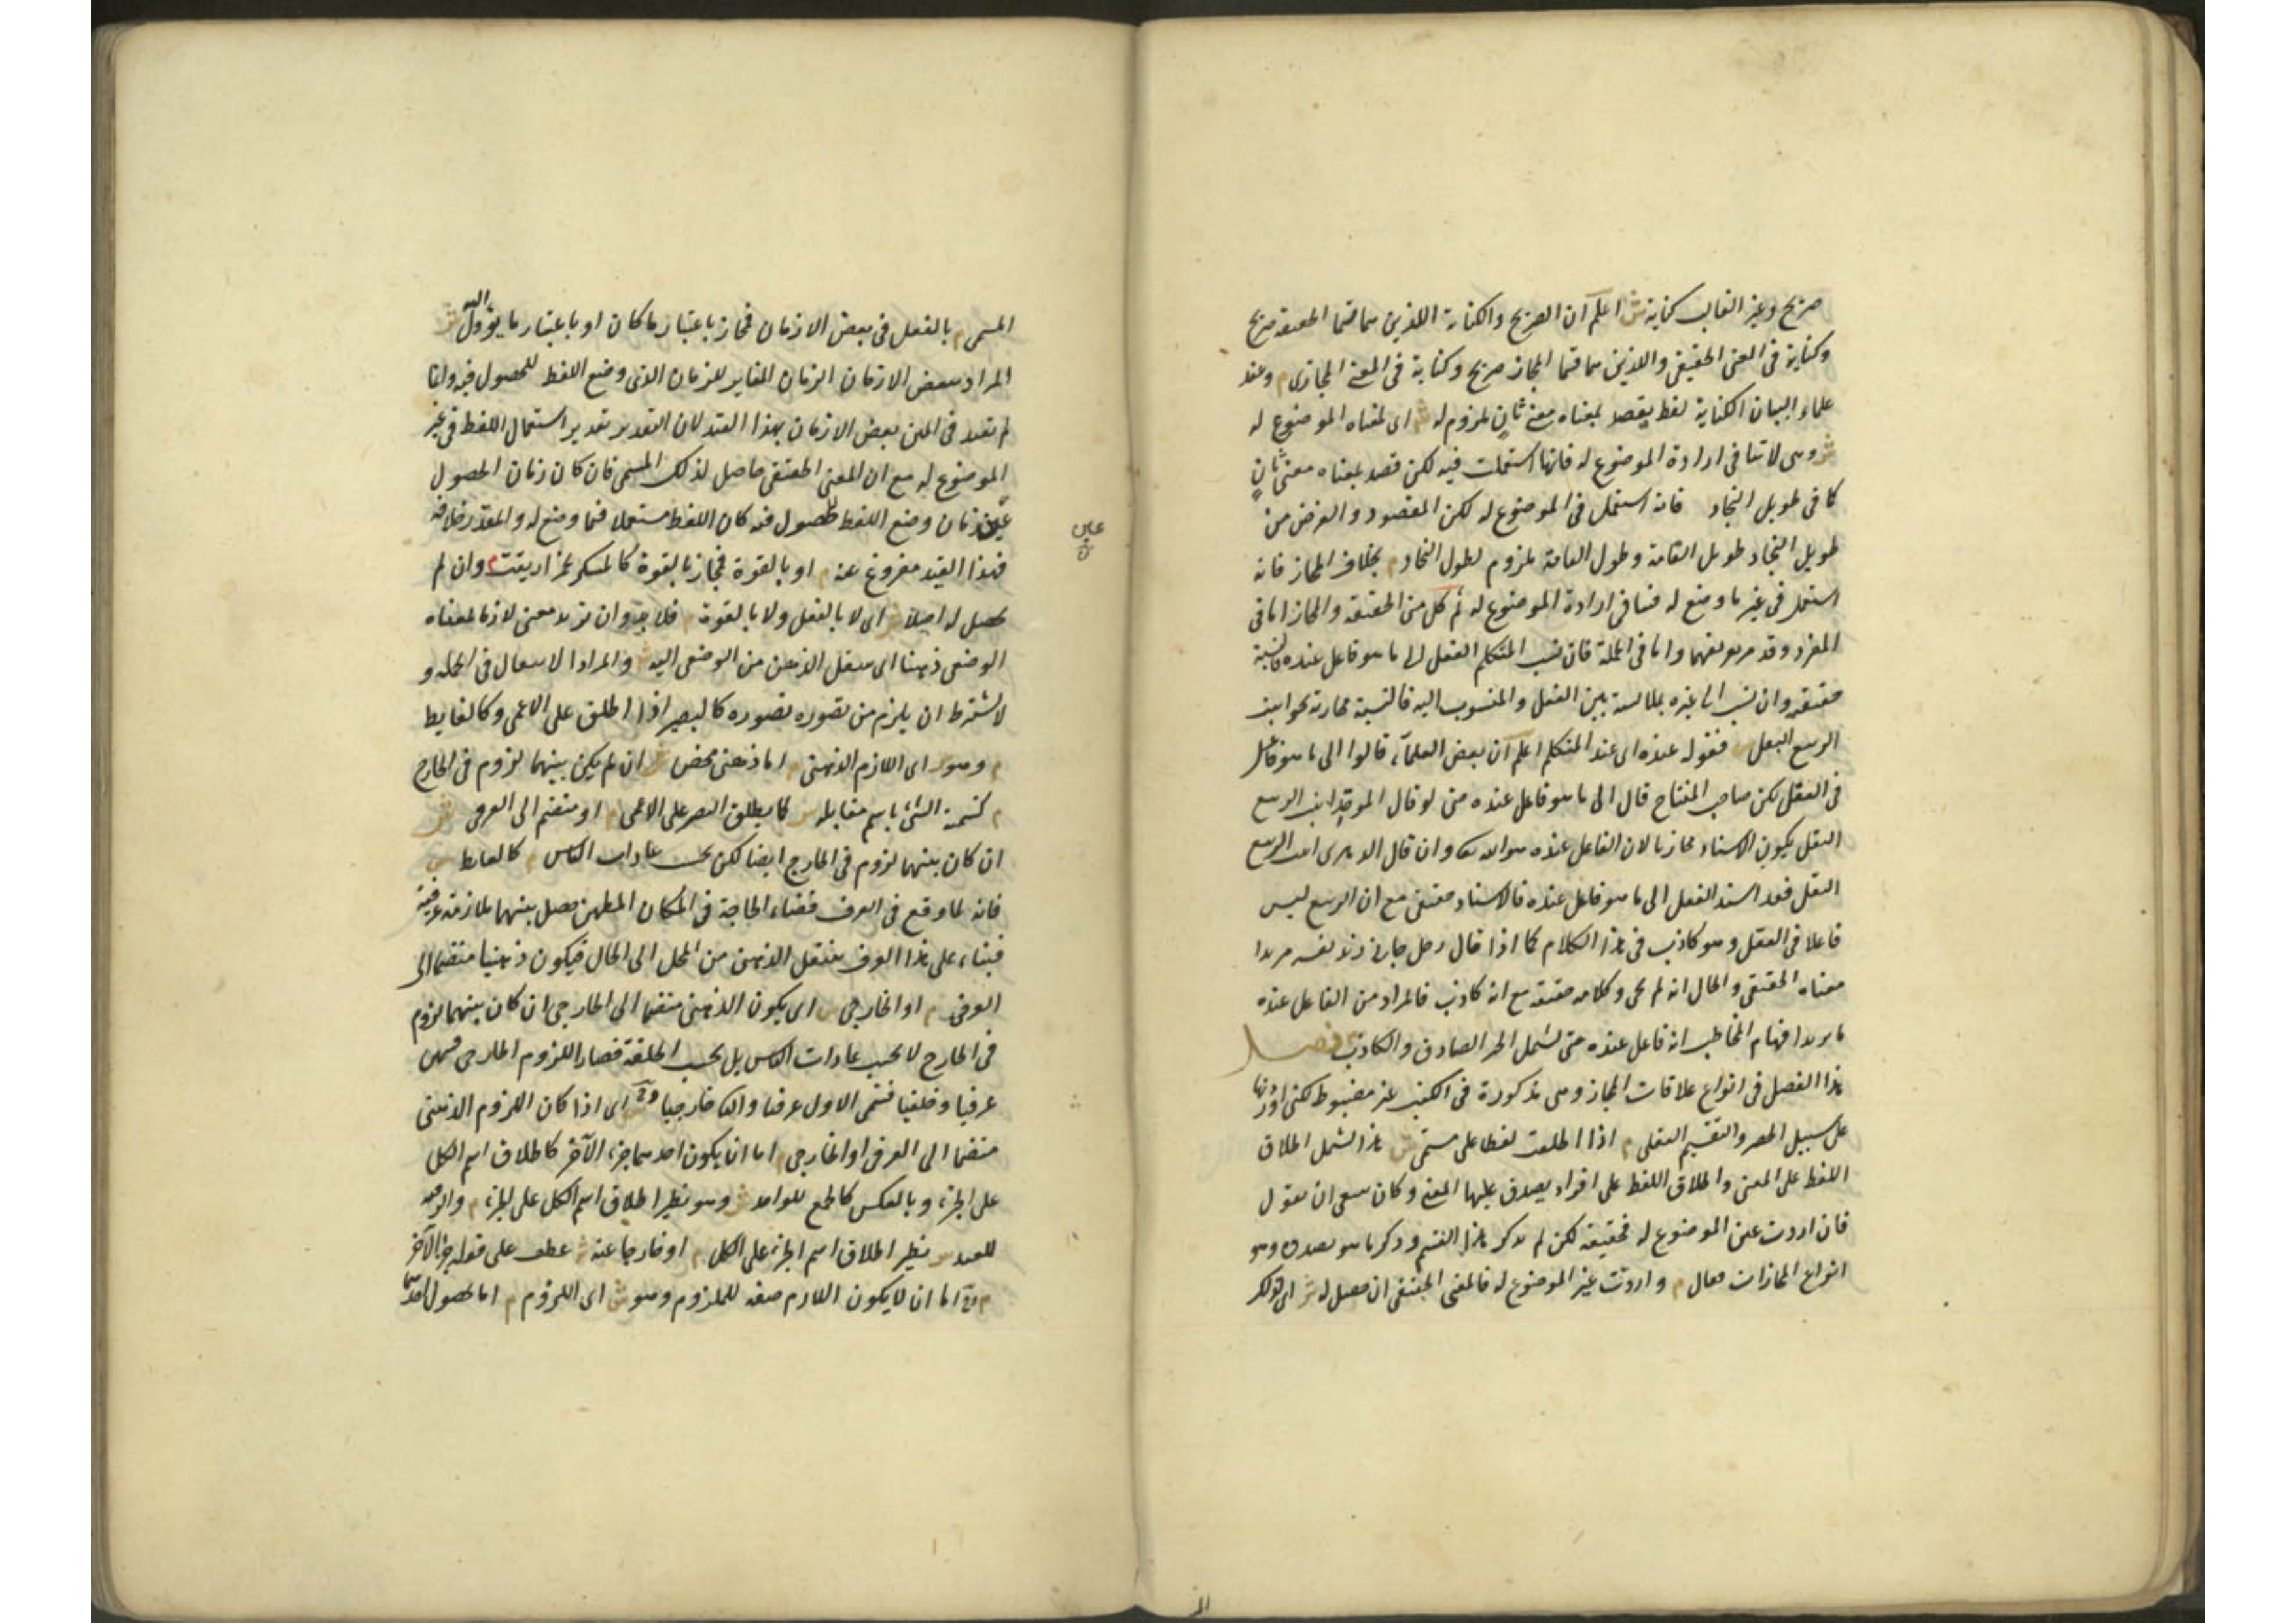 صريح وغير الغالب كناية ش اعلم ان الصريح والكناية اللذين هما قسما الحقيقة صريح
وكناية في المعنى الحقيقي واللذين هما قسما المجاز صريح وكناية في المعنى المجازى م وعند
علماء البيان الكناية لفظ يقصد بمعناه معنى ثان ملزوم له ش اى لمعناه الموضوع له
ش وهى لا تنافى ارادة الموضوع له فانها استعملت فيه لكن قصد بمعناه معنى ثان
كما فى طويل النجاد فانه استعمل فى الموضوع له لكن المقصود والغرض من
طويل النجاد طويل القامة وطول القامة ملزوم لطول النجاد م بخلاف المجاز فانه
استعمل فى غير ما وضع له فينافى ارادة الموضوع له ثم كل من الحقيقة والمجاز اما فى
المفرد وقد مر تعريفهما واما فى الجملة فان نسب المتكلم الفعل الى ما هو فاعل عنده فالنسبة
حقيقة وان نسب الى غيره لملابسة بين الفعل والمنسوب اليه فالنسبة مجازية نحو انبت
الربيع البقل ش فقوله عنده اى عند المتكلم اعلم ان بعض العلماء قالوا الى ما هو فاعل
فى العقل لكن صاحب المفتاح قال الى ما هو فاعل عنده حتى لو قال الموحد انبت الربيع
البقل يكون الاسناد مجازيا لان الفاعل عنده هو الله تعالى وان قال الدهرى انبت الربيع
البقل فقد اسند الفعل الى ما هو فاعل عنده فالاسناد حقيقى مع ان الربيع ليس
فاعلا فى العقل وهو كاذب فى هذا الكلام كما اذا قال رجل جاءنى زيد نفسه مريدا
معناه الحقيقى والحال انه لم يجئ وكلامه حقيقة مع انه كاذب فالمراد من الفاعل عنده
ما يريد افهام المخاطب انه فاعل عنده حتى يشمل الخبر الصادق والكاذب فصل
هذا الفصل فى انواع علاقات المجاز وهى مذكورة فى الكتب غير مضبوط لكنى اوردتها
على سبيل الحصر والتقسيم العقلى م اذا اطلقت لفظا على مسمى ش هذا يشمل اطلاق
اللفظ على المعنى واطلاق اللفظ على افراد يصدق عليها المعنى وكان ينبغى ان يقول
فان اردت عين الموضوع له فحقيقة لكن لم يذكر هذا القسم وذكر ما هو بصدده وهو
انواع المجازات فقال م واردت غير الموضوع له فالمعنى الحقيقى ان حصل له ش اى لذلك
المسمى م بالفعل فى بعض الازمان فمجاز باعتبار ما كان او باعتبار ما يؤول اليه ش
المراد ببعض الازمان الزمان المغاير للزمان الذى وضع اللفظ للحصول فيه وانما
لم يقيد فى المتن بعض الازمان بهذا القيد لان التقدير تقدير استعمال اللفظ فى غير
الموضوع له مع ان المعنى الحقيقى حاصل لذلك المسمى فان كان زمان الحصول
عين زمان وضع اللفظ لحصول فيه كان اللفظ مستعملا فيما وضع له والمقدر خلافه
عين
ن
فهذا القيد مفروغ عنه م او بالقوة فمجاز بالقوة كالمسكر لخمر اريقت م وان لم
يحصل له اصلا ش اى لا بالفعل ولا بالقوة م فلا بد وان تريد معنى لازما لمعناه
الوضعى ذهنا اى ينتقل الذهن من الوضعى اليه ش والمراد الانتقال فى الجملة و
لا يشترط ان يلزم من تصوره تصوره كالبصير اذا اطلق على الاعمى وكالغايط
م وهو ش اى اللازم الذهنى م اما ذهنى محض ش ان لم يكن بينهما لزوم فى الخارج
م كتسمية الشئ باسم مقابله ش كما يطلق البصر على الاعمى م او منضم الى العرفى ش
ان كان بينهما لزوم فى الخارج ايضا لكن بحسب عادات الناس م كالغايط ش
فانه لما وقع فى العرف قضاء الحاجة فى المكان المطمئن حصل بينهما ملازمة عرفية
فبناء على هذا العرف ينتقل الذهن من المحل الى الحال فيكون ذهنيا منضما الى
العرفى م او الخارجى ش اى يكون الذهنى منضما الى الخارجى ان كان بينهما لزوم
فى الخارج لا بحسب عادات الناس بل بحسب الخلقة فصار اللزوم الخارجى قسمين
عرفيا وخلقيا فسمى الاول عرفيا والثانى خارجيا وح ش اى اذا كان اللزوم الذهنى
منضما الى العرفى او الخارجى م اما ان يكون احدهما جزء الآخر كاطلاق اسم الكل
على الجزء وبالعكس كالجمع للواحد ش وهو نظير اطلاق اسم الكل على الجزء م والرقبة
للعبد ش نظير اطلاق اسم الجزء على الكل م او خارجا عنه ش عطف على قوله جزء الآخر
م وح اما ان لا يكون اللازم صفة للملزوم وهو ش اى اللزوم م اما بحصول احدهما